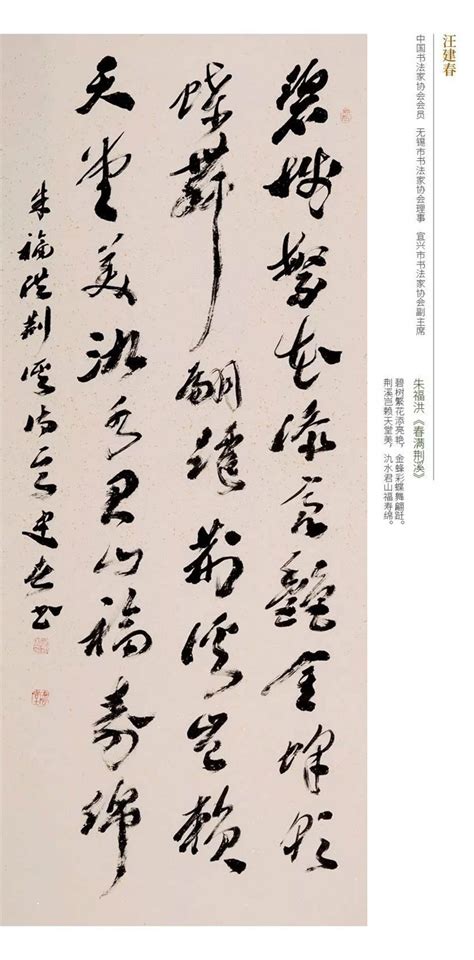 汪建春
中国书法家协会会员 无锡市书法家协会理事 宜兴市书法家协会副主席
朱福洪《春满荆溪》
碧树繁花添亮艳，金蜂彩蝶舞翩跹。
荆溪岂赖天堂美，氿水君山福寿绵。
碧树繁花添亮艷金蜂彩
蝶舞翩躚荆溪岂賴
天堂美氿水君山福寿綿
朱福洪荆溪建春书